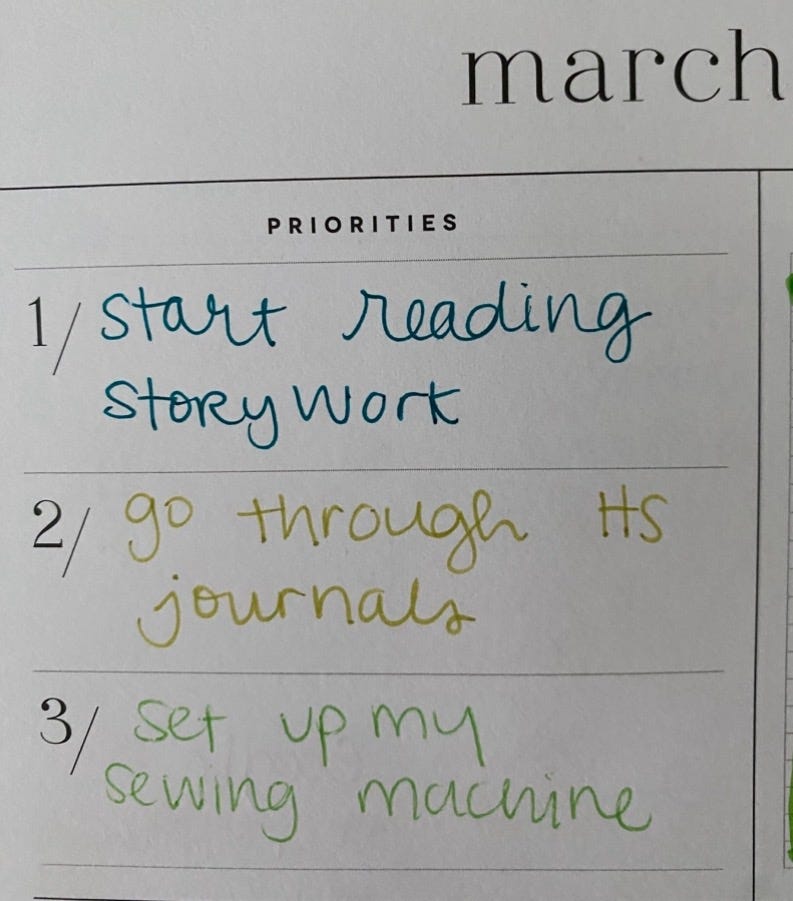 march
PRIORITIES
1/ start reading
storywork
2/ go through HS
journals
3/ set up my
sewing machine